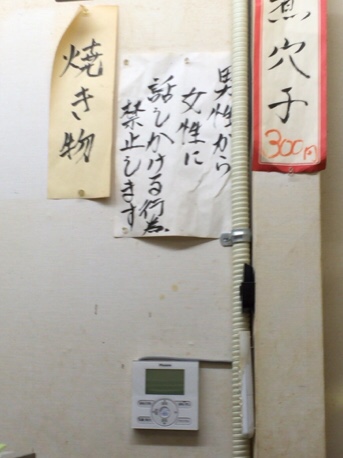 煮穴子
300円
男性から
女性に
話しかける行為、
禁止しきす
焼き物